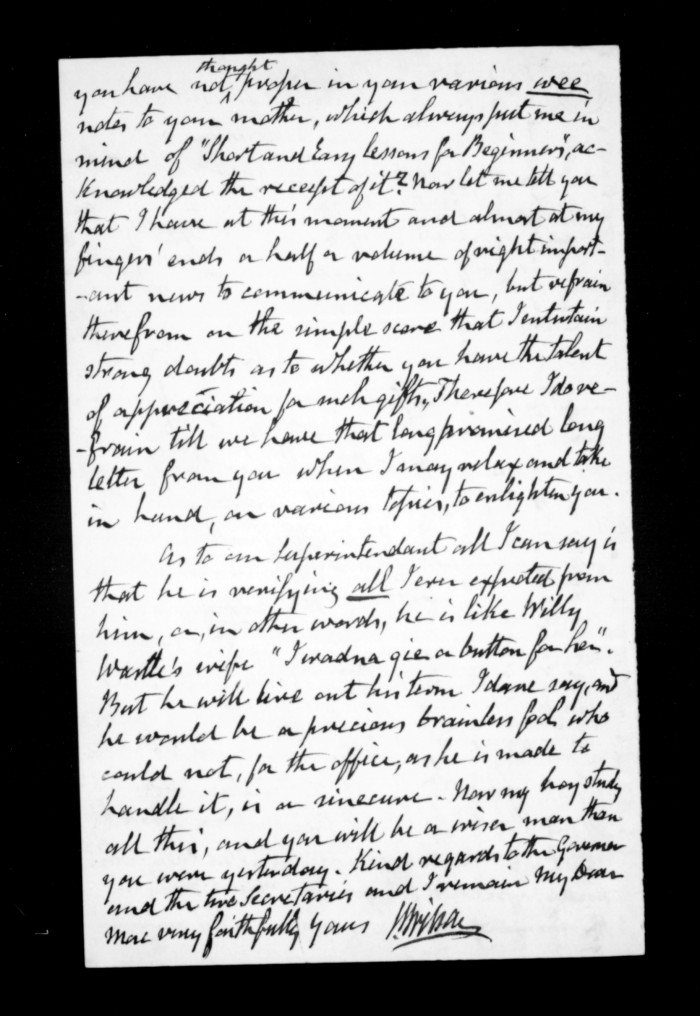 you have not thought proper in your various wee
notes to your mother, which always put me in
mind of "Short and Easy lessons for Beginners", ac-
knowledged the receipt of it? Now let me tell you
that I have at this moment and almost at my
fingers' ends a half a volume of right import-
-ant news to communicate to you, but refrain
therefrom on the simple score that I entertain
strong doubts as to whether you have the talent
of appreciation for such gifts. Therefore I do re-
-frain till we have that long promised long
letter from you when I may relax and take
in hand, on various topics, to enlighten you.
As to our Superintendant all I can say is
that he is verifying all I ever expected from
him, or, in other words, he is like Willy
Wastle's wife "I wadna gie a button for her".
But he will live out his term I dare say, and
he would be a precious brainless fool who
could not, for the office, as he is made to
handle it, is a sinecure. Now my boy study
all this, and you will be a wiser man than
you were yesterday. Kind regards to the Governor
and the two Secretaries and I remain My Dear
Mac very faithfully yours